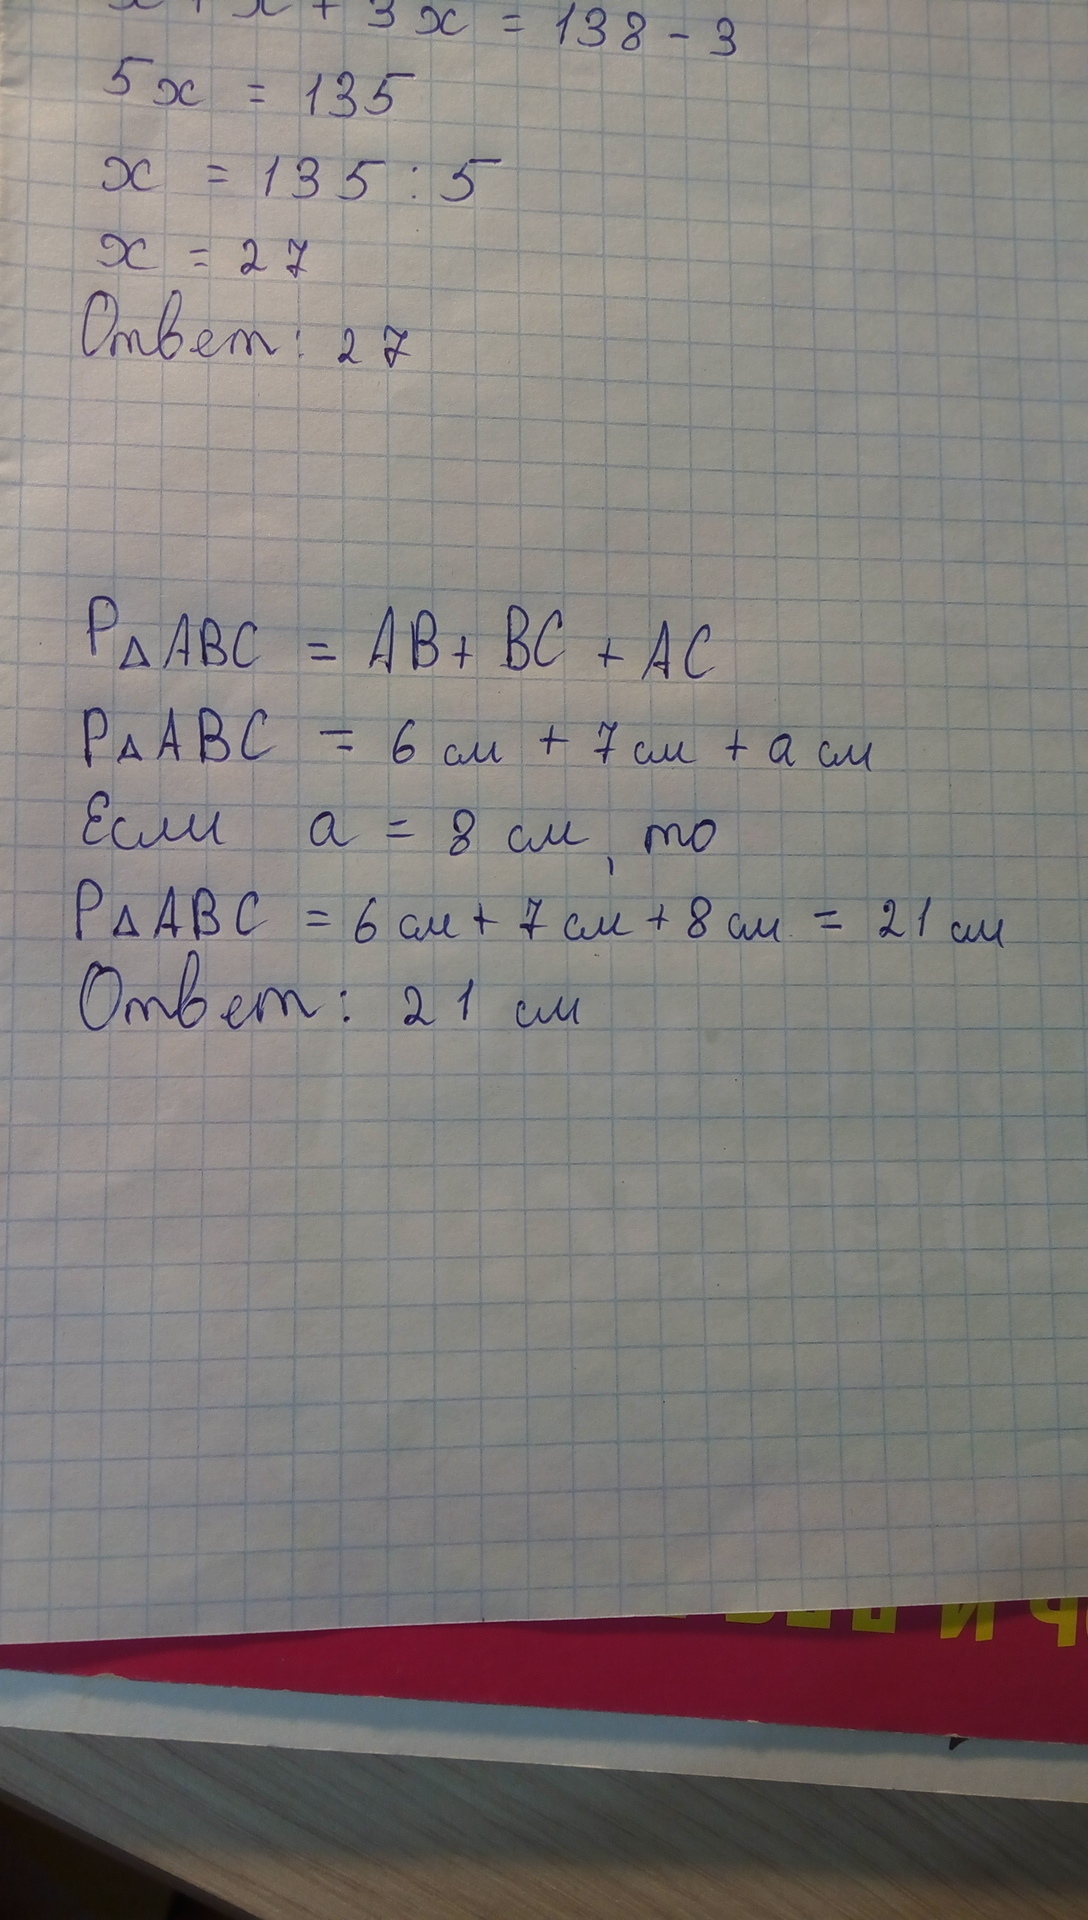 x + x + 3x = 138 - 3
5x = 135
x = 135 : 5
x = 27
Ответ: 27
P△ABC = AB + BC + AC
P△ABC = 6 см + 7 см + a см
Если a = 8 см, то
P△ABC = 6 см + 7 см + 8 см = 21 см
Ответ: 21 см